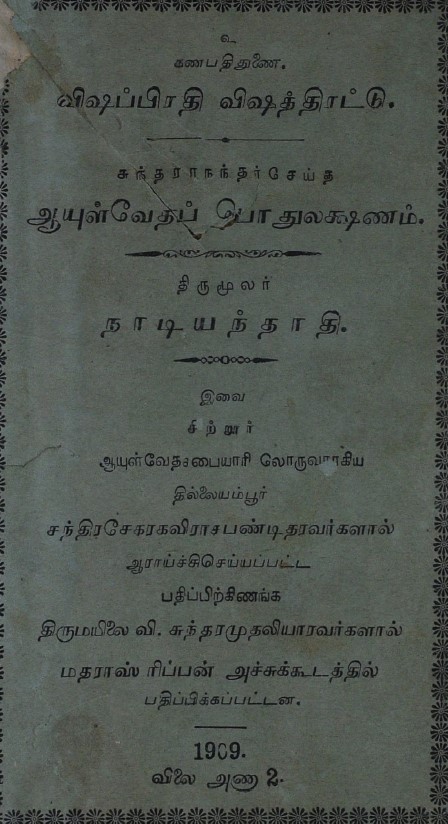 உ
கணபதிதுணை.
விஷப்பிரதி விஷத்திரட்டு.
சுந்தராநந்தர்சேய்த
ஆயுள்வேதப் பொதுலக்ஷணம்.
திருமூலர்
நாடியந்தாதி.
இவை
சிற்றூர்
ஆயுள்வேதசபையாரி லொருவராகிய
தில்லையம்பூர்
சந்திரசேகரகவிராசபண்டிதரவர்களால்
ஆராய்ச்சிசெய்யப்பட்ட
பதிப்பிற்கிணங்க
திருமயிலை வி. சுந்தரமுதலியாரவர்களால்
மதராஸ் ரிப்பன் அச்சுக்கூடத்தில்
பதிப்பிக்கப்பட்டன.
1909.
விலை அணு 2.